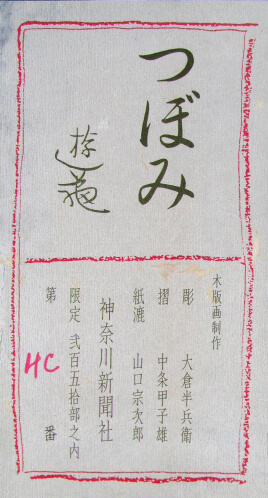 つぼみ
木版画制作
彫 大倉半兵衛
摺 中条甲子雄
紙漉 山口宗次郎
神奈川新聞社
限定 弐百五拾部之内
第 HC 番